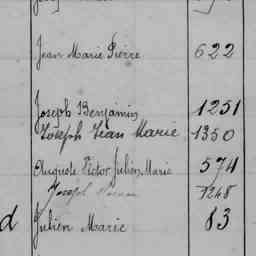 Jean Marie Pierre 622
Joseph Benjamin 1251
Joseph Jean Marie 1350
Auguste Victor Julien Marie 574
Joseph 1248
d Julien Marie 83